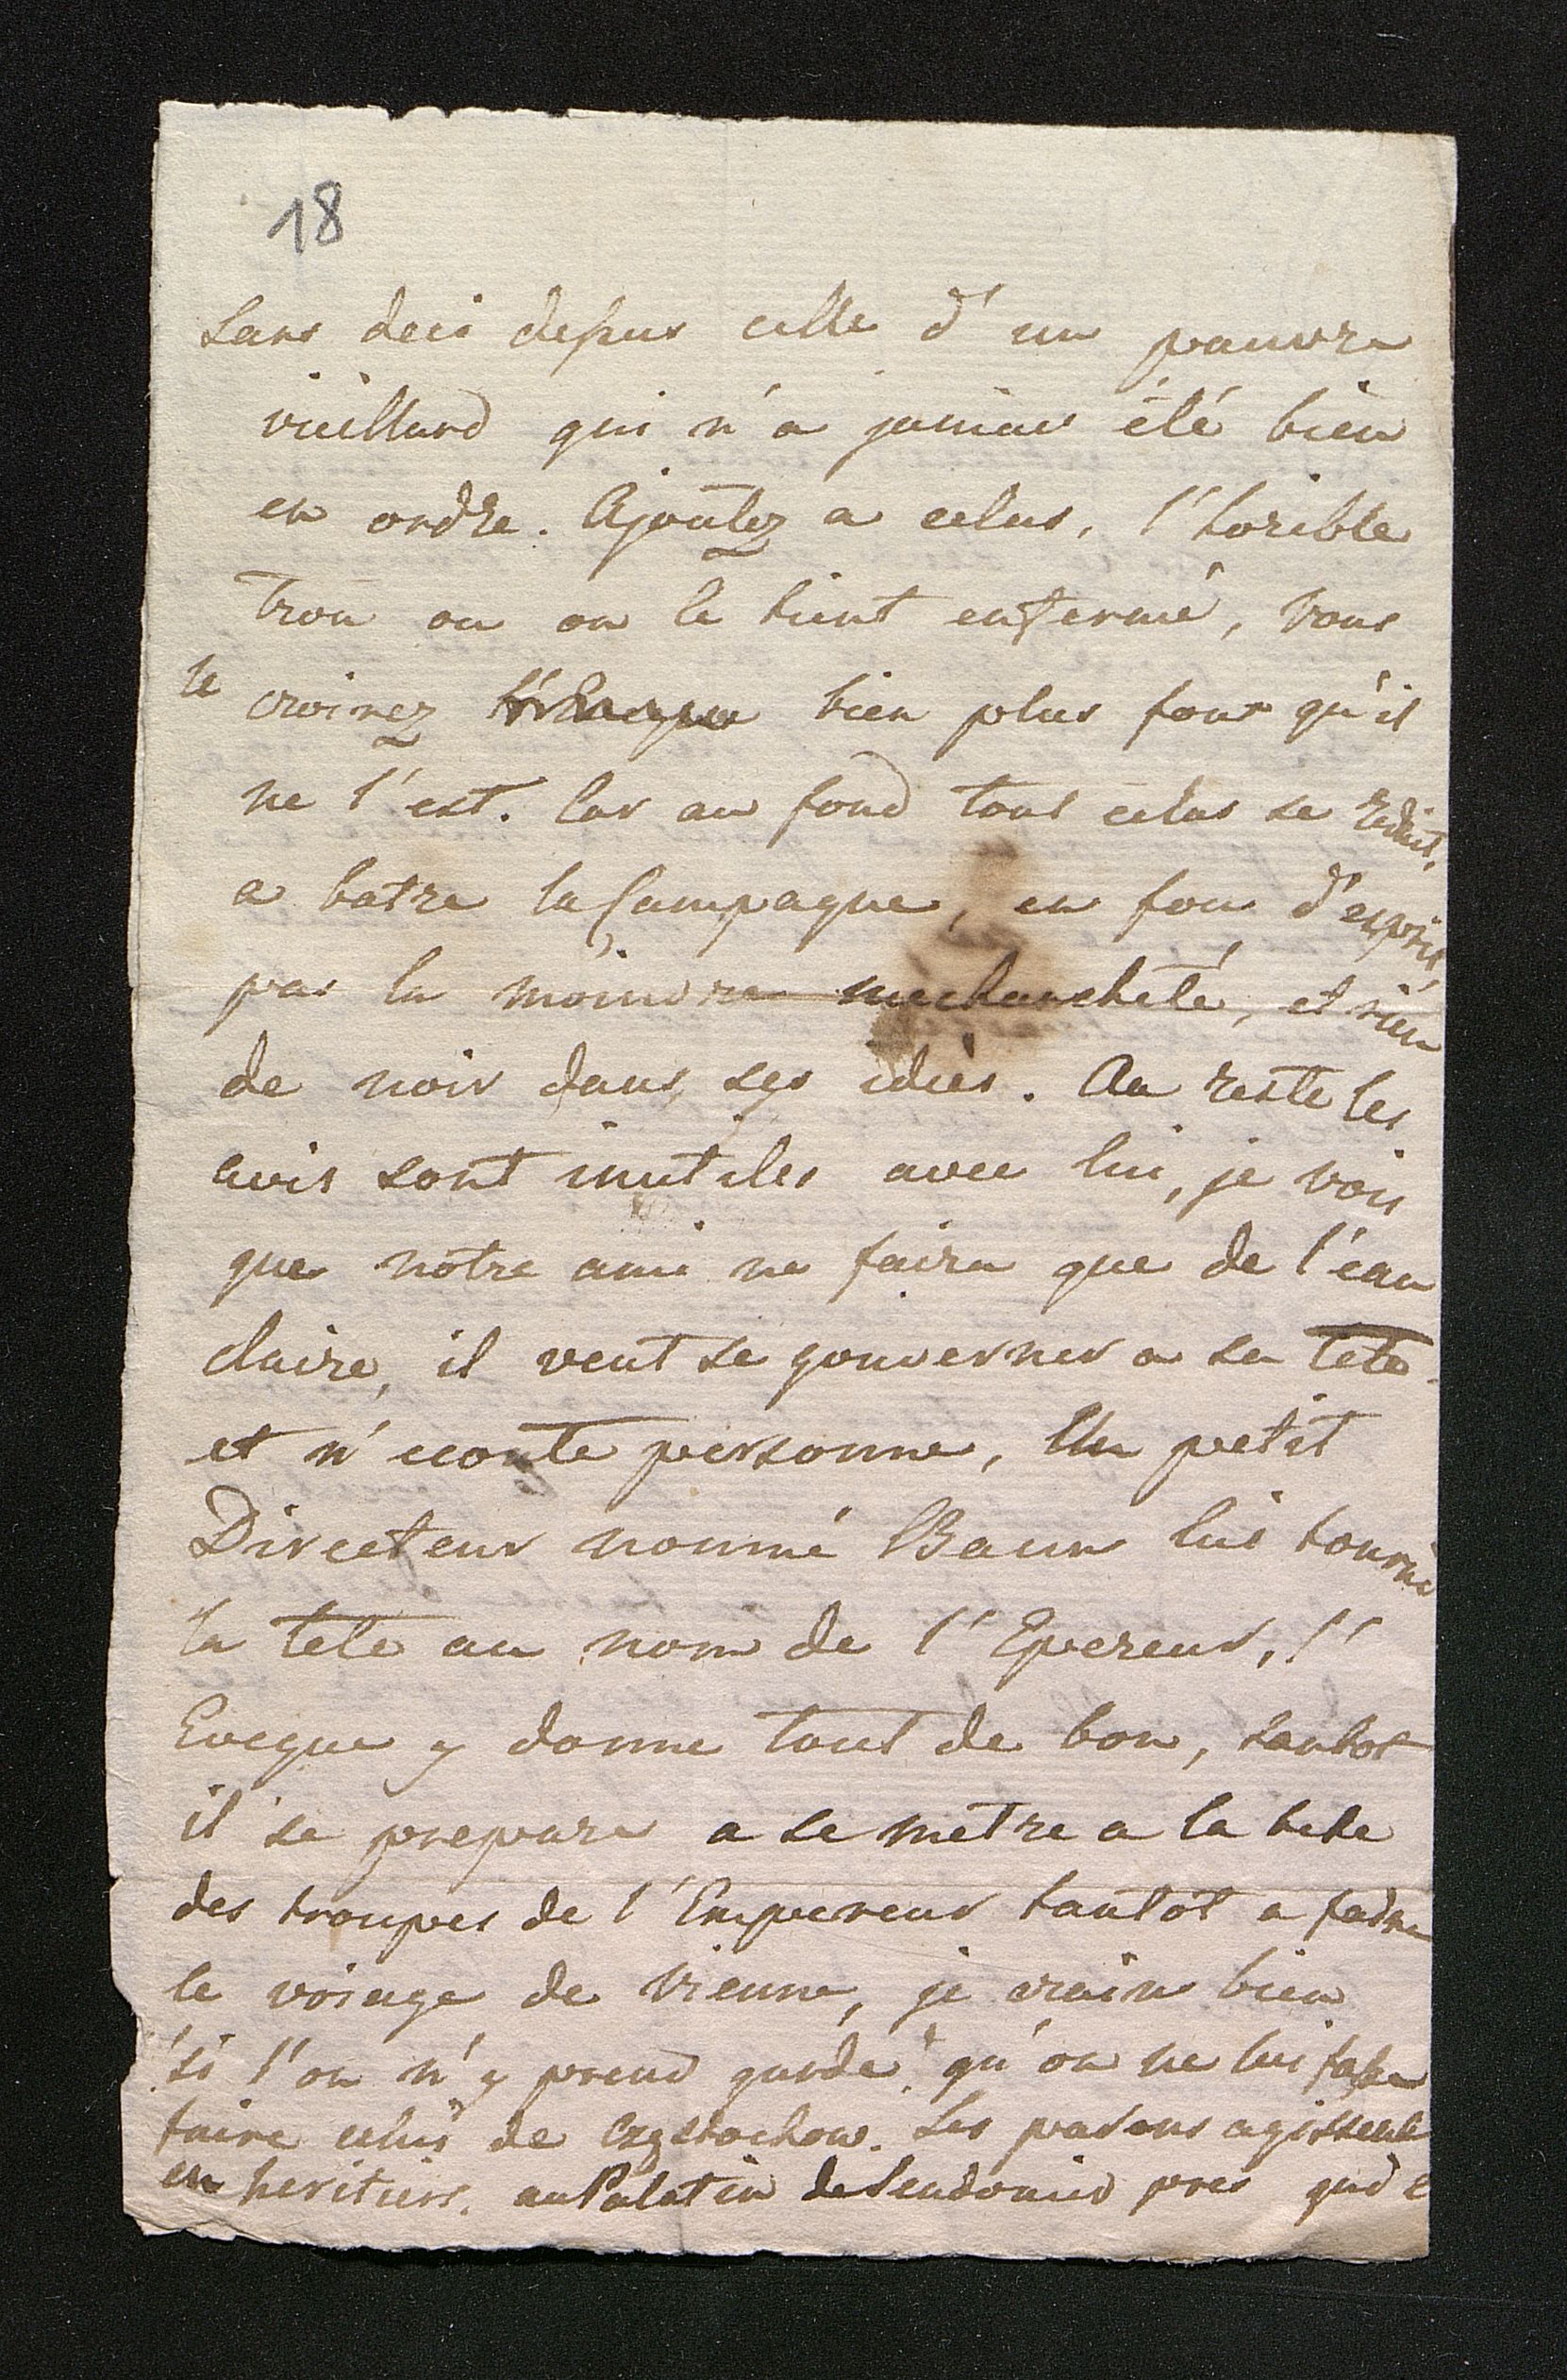 18
sans deci depus celle d'un pauvre
vieillard qui n'a jamais été bien
en ordre. Ajoutez a celas, l'horible
trou ou on le tient enfermé, vous
le croirez bien plus fous qu'il
ne l'est. Car au fond tout celas se reduit,
a batre la Campagne, en fou d'esprit,
pas la moindre mechancheté, et rien
de noir dans ses idiés. Au reste les
avis sont inutiles avec lui, je vois
que notre ami ne faira que de l'eau
claire, il veut se gouverner a sa tete
et n'ecoute personne, Un petit
Directeur nommé Baum lui tourne
la tete au nom de l'Epereur, l'
Eveque y donne tout de bon, tantot
il se prepare a se metre a la tete
des troupes de l'Empereur tantôt a faire
le voiage de Vienne, je crain bien
si l'on n'y prend garde, qu'on ne lui fasse
faire celui de Czestochow. Les parens agissent
en heritiers. au Palatin de Sendomir pres